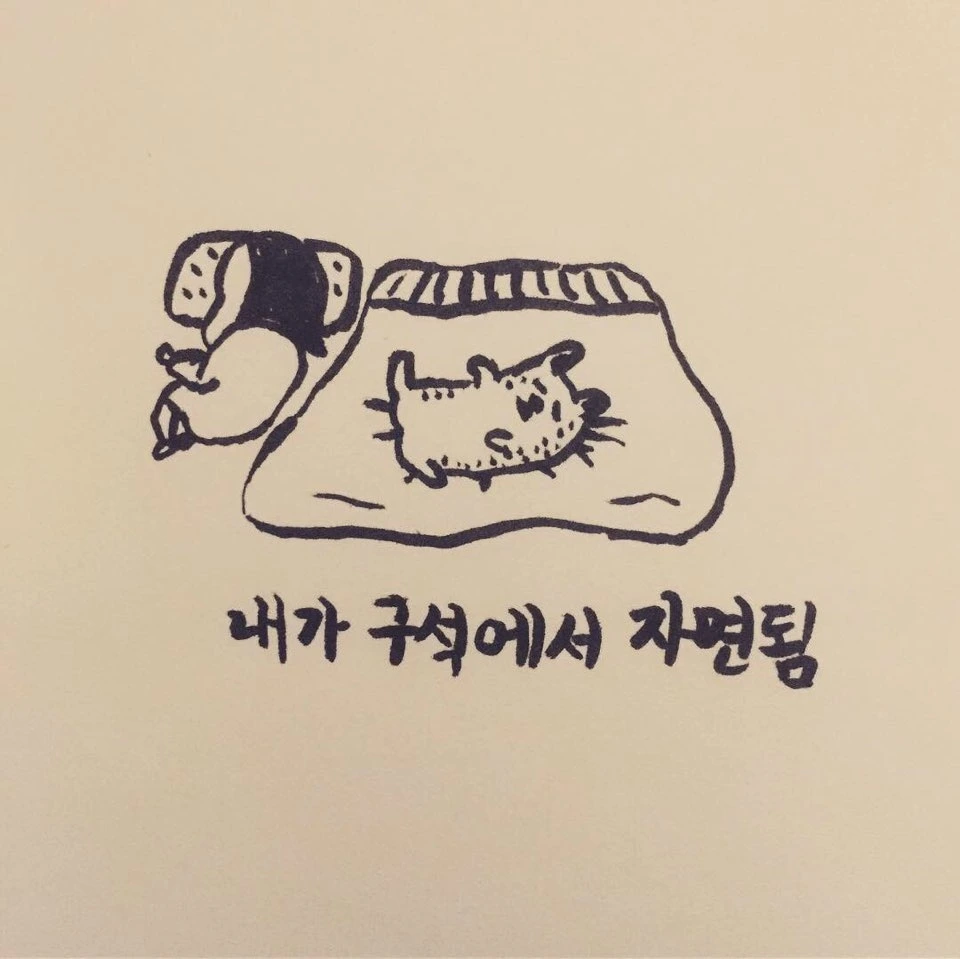 내가 구석에서 자면됨